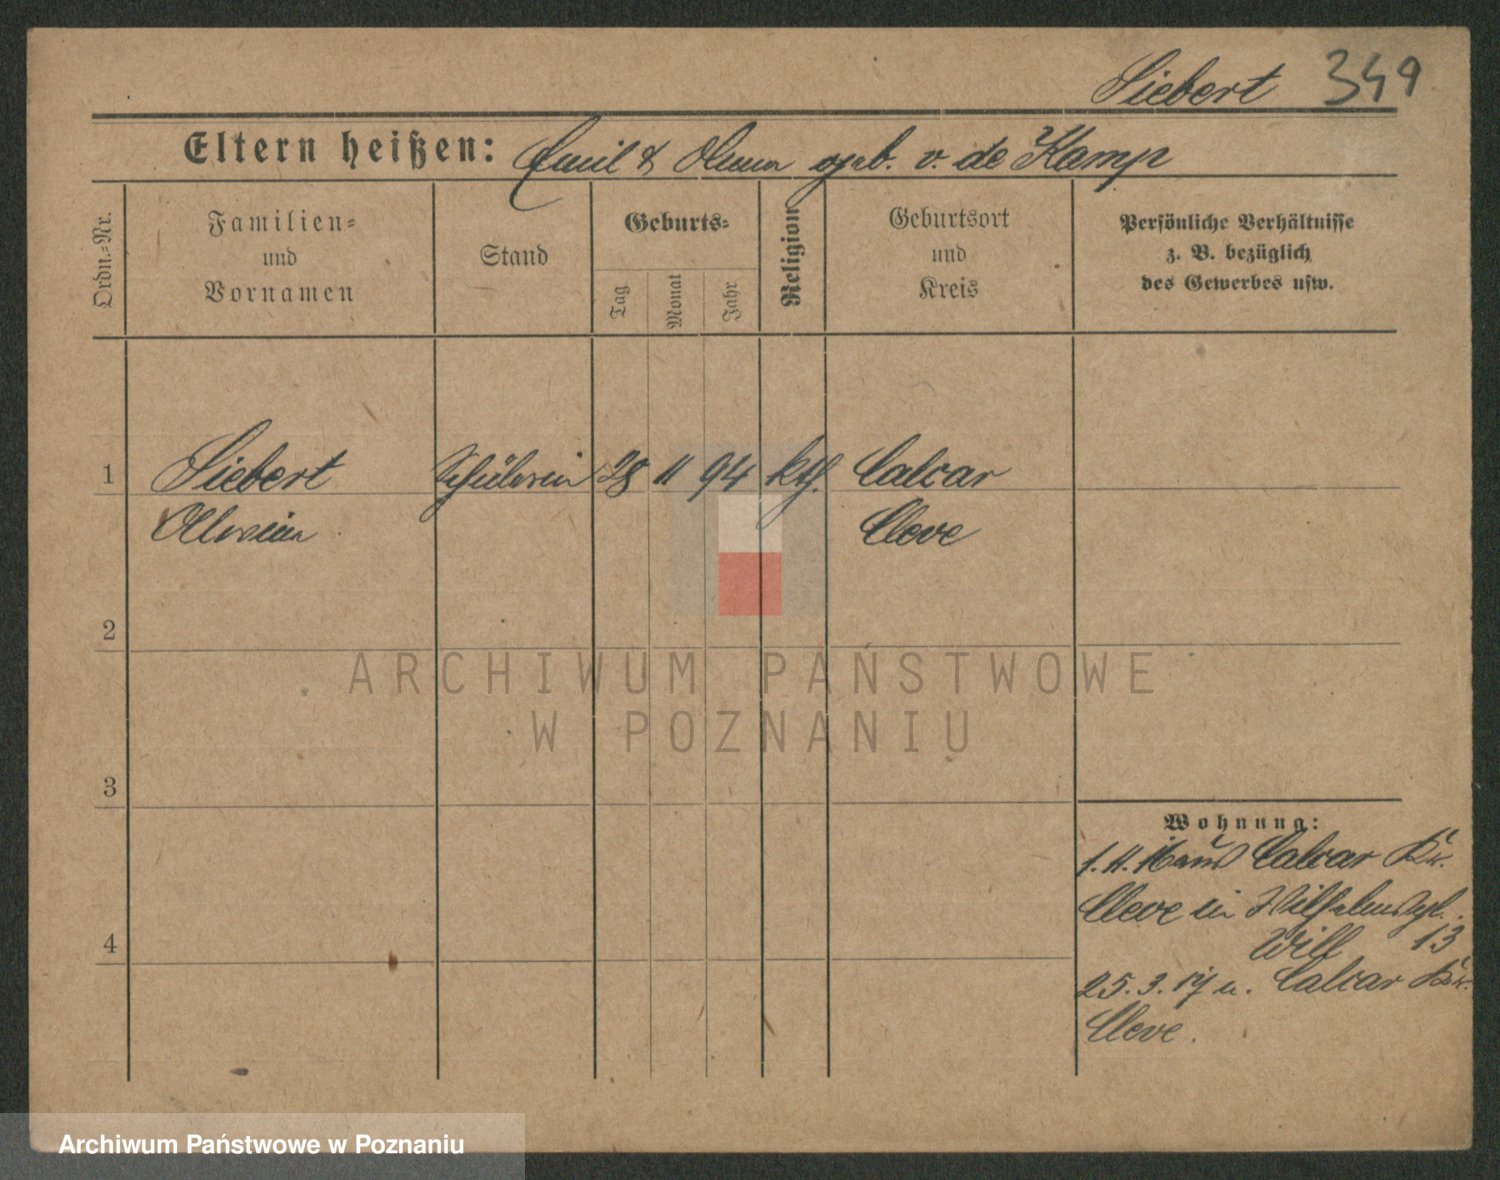 Siebert 349
Eltern heißen: Emil & geb. v. de Kamp
Ordn.-Nr.
Familien-
und
Vornamen
Stand
Geburts-
Tag
Monat
Jahr
Religion
Geburtsort
und
Kreis
Persönliche Verhältnisse
z. B. bezüglich
des Gewerbes usw.
1 Siebert Schülerin 28 11 94 kth. Calcar
Cleve
2
3
4
Wohnung:
1. 11. 16 aus Calcar Kr.
Cleve in
Will 13
25. 3. 17 n. Calcar Kr.
Cleve.
ARCHIWUM PAŃSTWOWE
W POZNANIU
Archiwum Państwowe w Poznaniu